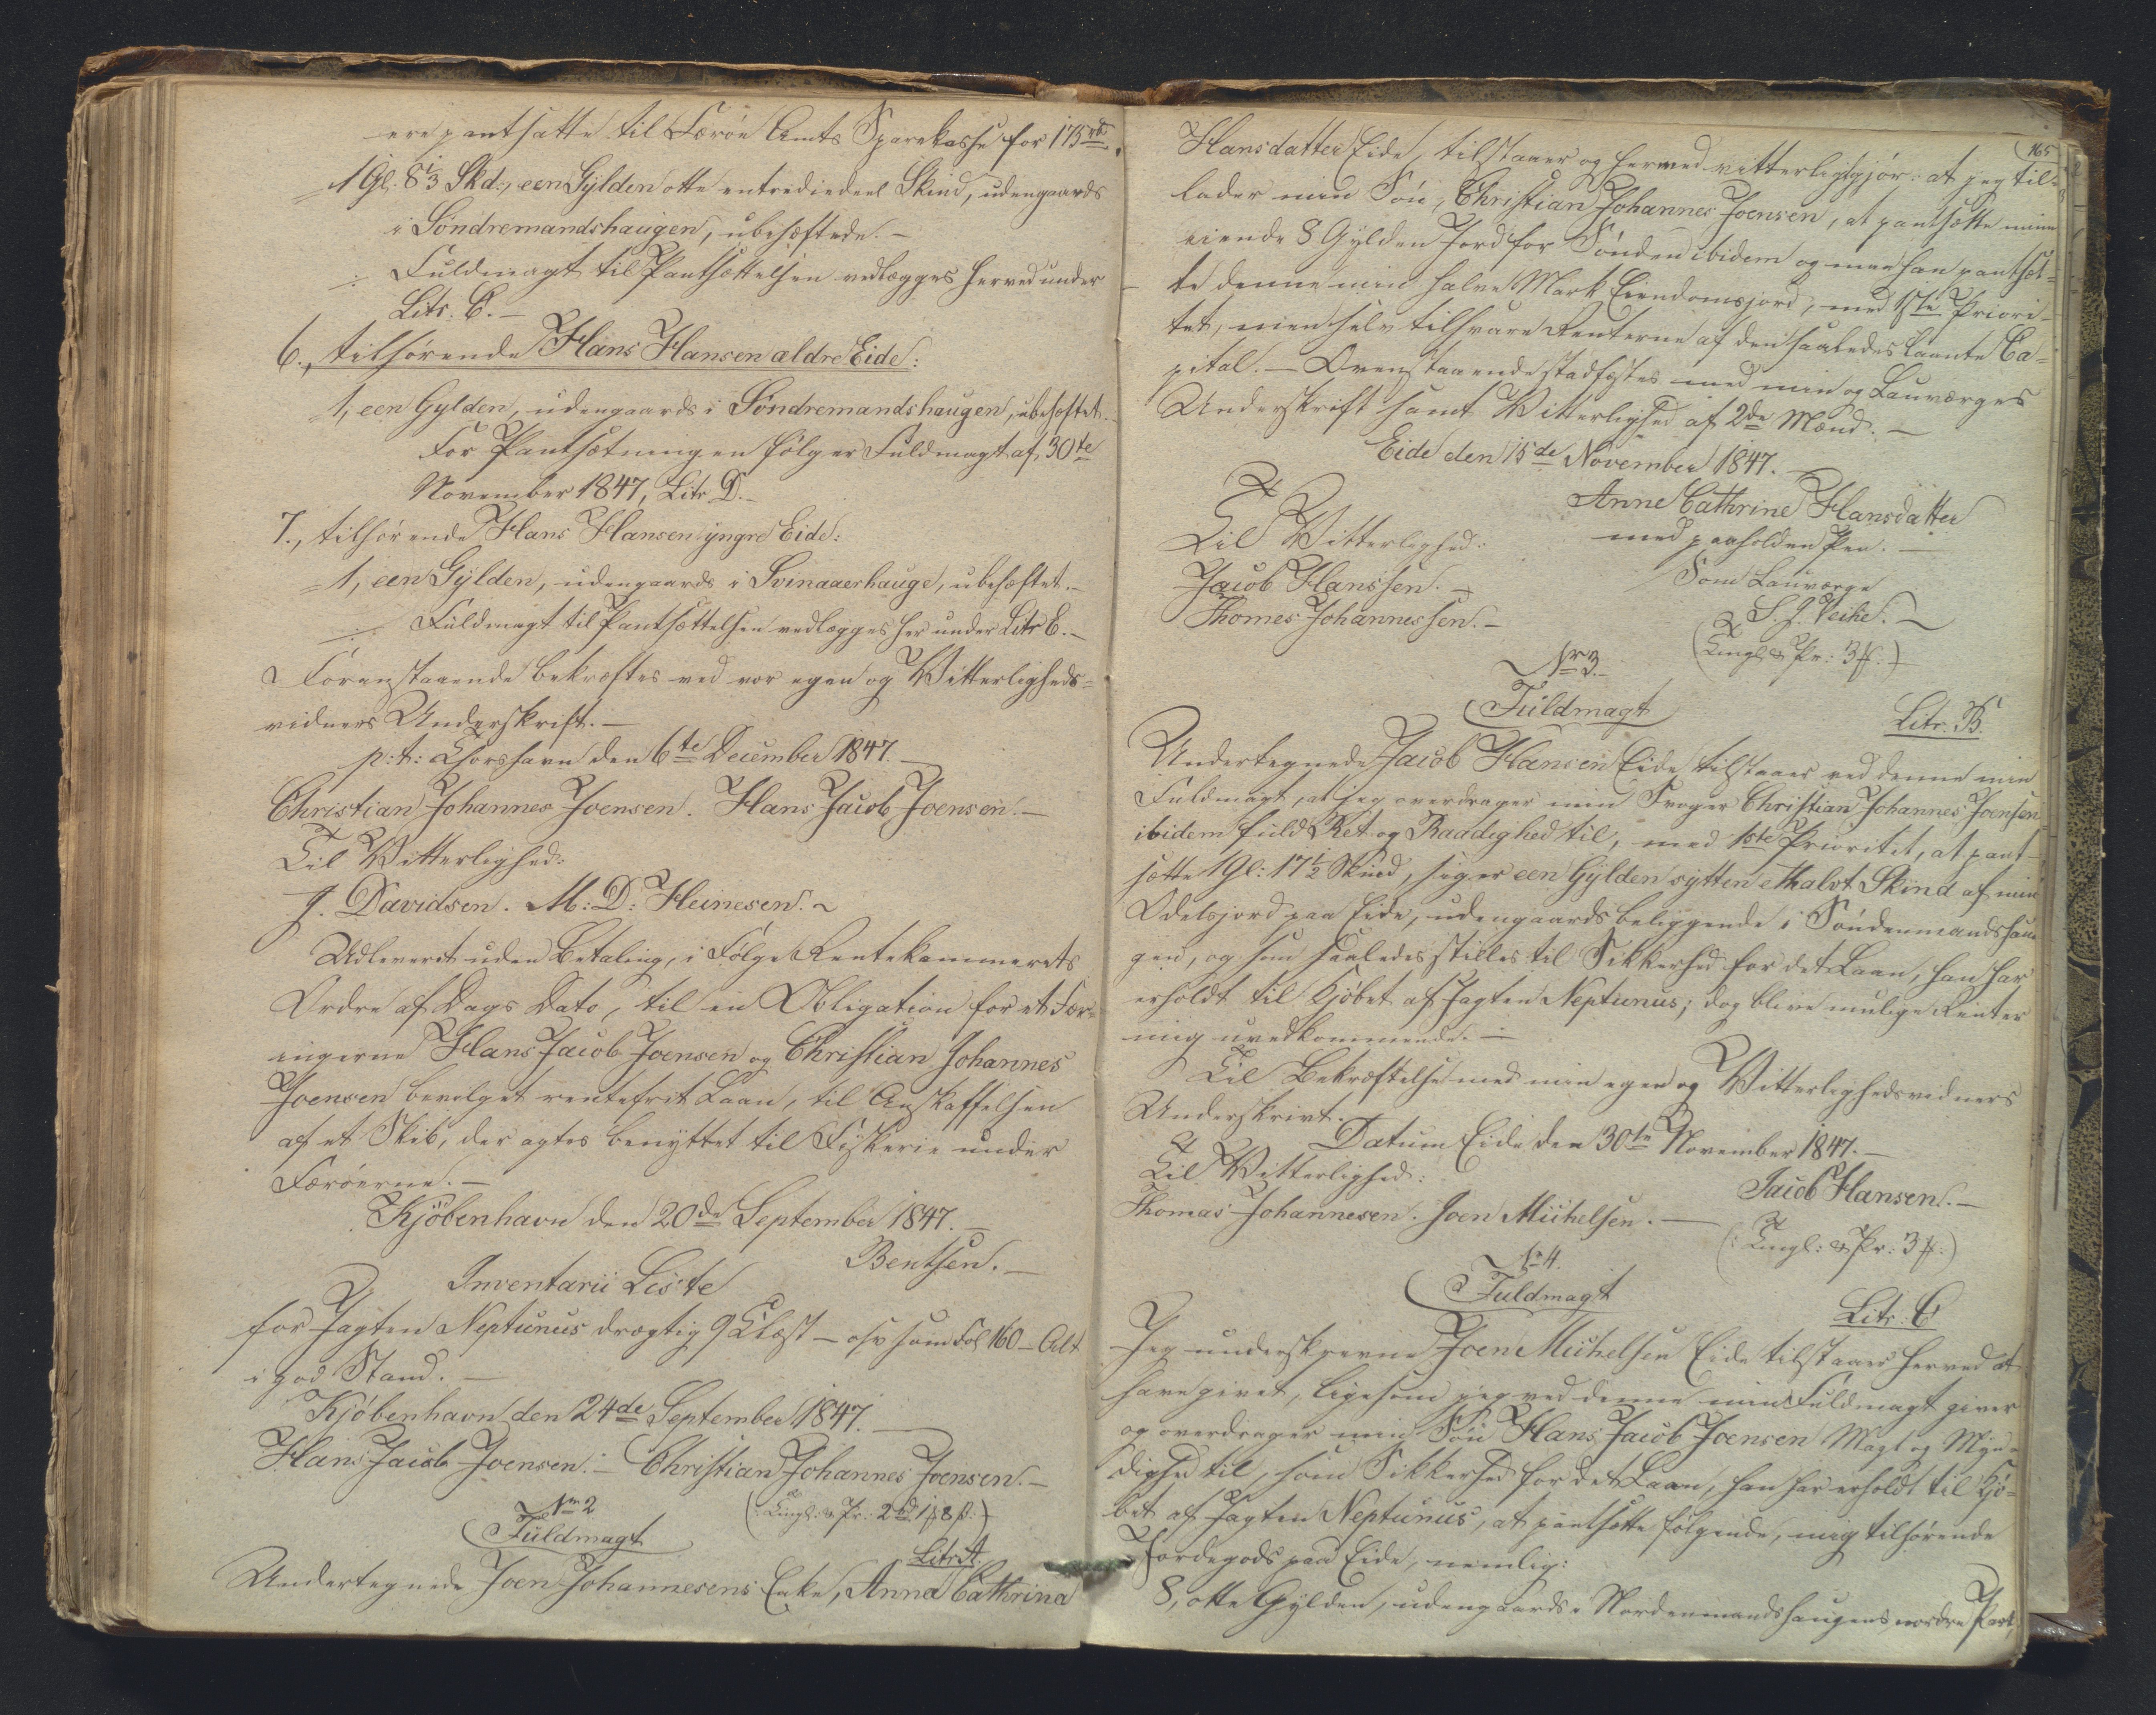 ere pantsatte til Færöe Amts Sparekasse for 175 rd.
1 Gl: 8 1/3 Skd:, een Gylden otte entrediedeel Skind, udengaards
i Söndremandshaugen, ubehæftede. -
Fuldmagt til Pantsættelsen vedlægges herved under
Litr. C. -
6., tilhörende Hans Hansen ældre Eide:
1, een Gylden, udengaards i Söndremandshaugen, ubehæftet.
For Pantsætningen fölger Fuldmagt af 30te
November 1847, Litr D. -
7., tilhörende Hans Hansen yngre Eide:
1, een Gylden, udengaards i Svinaaerhauge, ubehæftet. -
Fuldmagt til Pantsættelsen vedlægges her under Litr E. -
Foranstaaende bekræftes ved vor egen og Vitterligheds-
vidners Underskrift. -
p:t: Thorshavn den 6te December 1847. -
Christian Johannes Joensen. Hans Jacob Joensen. -
Til Vitterlighed:
J. Davidsen. M: D: Heinesen.
Udleveret uden Betaling, i Fölge Rentekammerets
Ordre af Dags Dato, til en Obligation for et Fær-
ingerne Hans Jacob Joensen og Christian Johannes
Joensen bevilget rentefrit Laan, til Anskaffelsen
af et Skib, der agtes benyttet til Fiskerie under
Færöerne. -
Kjöbenhavn den 20de September 1847. -
Bentsen. -
Inventarii Liste
for Jagten Neptunus drægtig 9 Clæst - osv som Fol 160 - Alt
i god Stand. -
Kjöbenhavn den 24de September 1847. -
Hans Jacob Joensen. - Christian Johannes Joensen. -
No 2 (: Tingl: & Pr: 2 rd 1 # 8 s:)
Fuldmagt
Litr A.
Undertegnede Joen Johannesens Enke, Anna Cathrina
165
Hansdatter Eide, tilstaaer og hermed vitterliggjör: at jeg til-
lader min Sön, Christian Johannes Joensen, at pantsætte mine
eiende 8 Gylden Jord for Sönden ibidem og maa han pantsæt-
te denne min halve Mark Eiendomsjord, med 1ste Priori-
tet, men selv tilsvare Renterne af den saaledes laante Ca-
pital. - Ovenstaaende stadfæstes med min og Lauværges
Underskrift samt Vitterlighed af 2de Mænd. -
Eide den 15de November 1847. -
Anne Cathrine Hansdatter
Til Vitterlighed: med paaholden Pen. -
Jacob Hanssen. - Som Lauværge
Thomes Johannessen. - S. J. Veihe. -
(Tingl & Pr: 3 #:)
No 3.
Fuldmagt
Litr. B.
Undertegnede Jacob Hansen Eide tilstaaer ved denne min
Fuldmagt, at jeg overdrager min Svoger Christian Johannes Joensen
ibidem fuld Ret og Raadighed til, med 1ste Prioritet, at pant-
sætte 1 Gl: 17 1/2 Skind, siger een Gylden sytten et halvt Skind af min
Odelsjord paa Eide, udengaards beliggende i Söndenmandshau
gen, og som saaledes stilles til Sikkerhed for det Laan, han har
erholdt til Kjöbet af Jagten Neptunus; dog blive mulige Renter
mig uvedkommende. -
Til Bekræftelse med min egen og Vitterlighedsvidners
Underskrivt.
Datum Eide den 30te November 1847. -
Til Vitterlighed: Jacob Hansen. -
Thomas Johannesen. Joen Michelsen. - (: Tingl: & Pr: 3 #:)
No 4.
Fuldmagt
Litr. C
Jeg underskrevne Joen Michelsen Eide tilstaaer herved at
have givet, ligesom jeg ved denne min Fuldmagt giver
og overdrager min Sön Hans Jacob Joensen Magt og Myn-
dighed til, som Sikkerhed for det Laan, han har erholdt til Kjö-
bet af Jagten Neptunus, at pantsætte fölgende, mig tilhörende
Jordegods paa Eide, nemlig:
8, otte Gylden, udengaards i Nordenmandshaugens nordre Part,